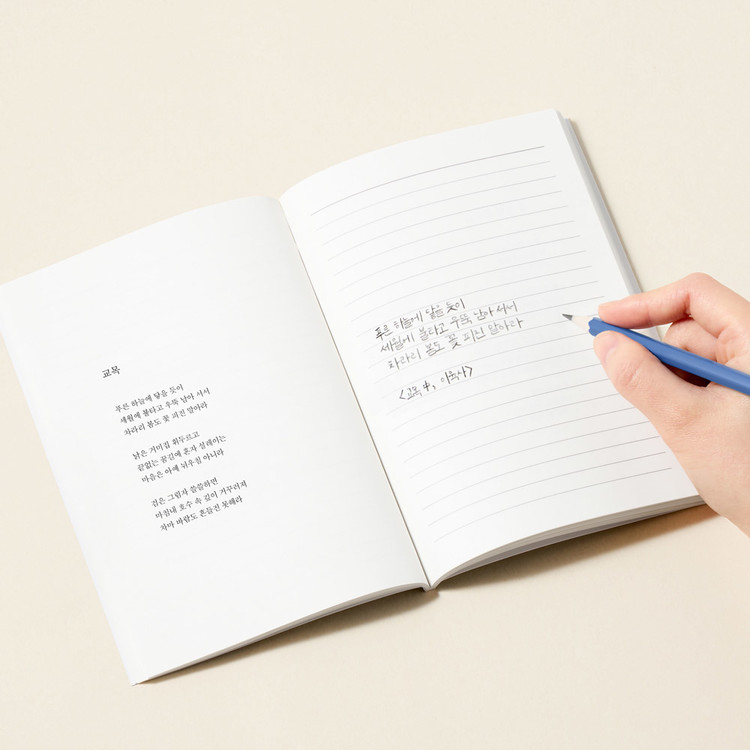 교목
푸른 하늘에 닿을 듯이
세월에 불타고 우뚝 남아 서서
차라리 봄도 꽃 피진 말아라
낡은 거미집 휘두르고
끝없는 꿈길에 혼자 설레이는
마음은 아예 뉘우침 아니라
검은 그림자 쓸쓸하면
마침내 호수 속 깊이 거꾸러져
차마 바람도 흔들진 못해라
푸른 하늘에 닿을 듯이
세월에 불타고 우뚝 남아 서서
차라리 봄도 꽃 피진 말아라
<교목 中, 이육사>